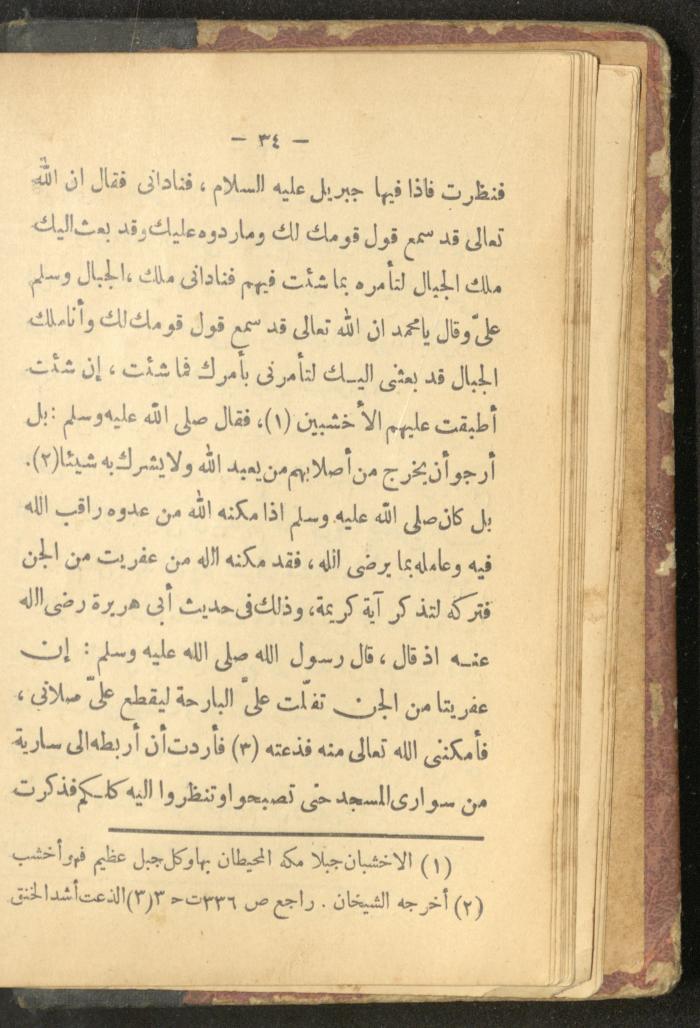 — ٣٤ —
فنظرت فاذا فيها جبريل عليه السلام ، فنادانى فقال ان الله
تعالى قد سمع قول قومك لك وماردوه عليك وقد بعث اليك
ملك الجبال لتأمره بما شئت فيهم فنادانى ملك ،الجبال وسلم
علىّ وقال يامحمد ان الله تعالى قد سمع قول قومك لك وأنا ملك
الجبال قد بعثنى اليك لتأمرنى بأمرك فما شئت ، إن شئت
أطبقت عليهم الأخشبين (١)، فقال صلى الله عليه وسلم : بل
أرجو أن يخرج من أصلابهم من يعبد الله ولا يشرك به شيئا(٢).
بل كان صلى الله عليه وسلم اذا مكنه الله من عدوه راقب الله
فيه وعامله بما يرضى الله ، فقد مكنه الله من عفريت من الجن
فتركه لتذكر آية كريمة، وذلك فى حديث أبى هريرة رضى الله
عنه اذ قال ، قال رسول الله صلى الله عليه وسلم : إن
عفريتا من الجن تفلّت علىَّ البارحة ليقطع علىّ صلاتى ،
فأمكننى الله تعالى منه فذعته (٣) فأردت أن أربطه الى سارية
من سوارى المسجد حتى تصبحوا وتنظروا اليه كلكم فذكرت
(١) الاخشبان جبلا مكه المحيطان بها وكل جبل عظيم فهو أخشب
(٢) أخرجه الشيخان . راجع ص ٣٣٦ت ح ٣ (٣) الذعت أشد الخنق